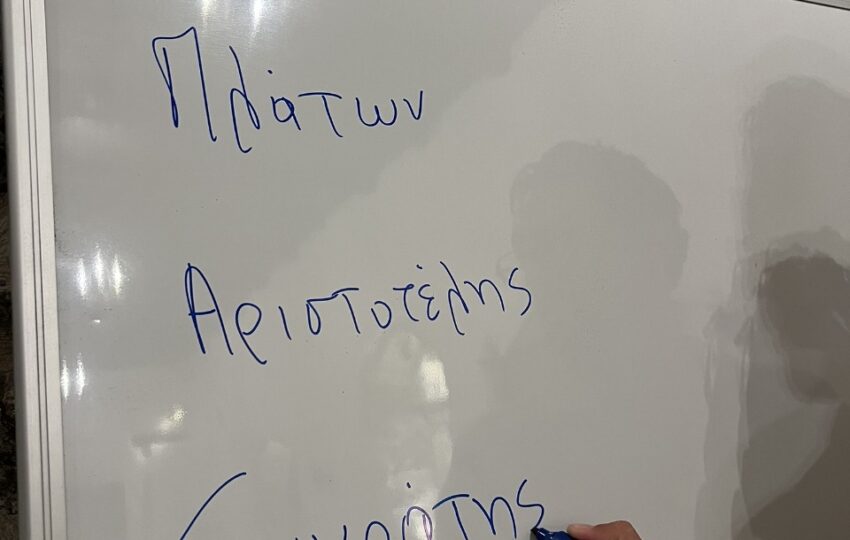 Πλάτων
Αριστοτέλης
Σωκράτης